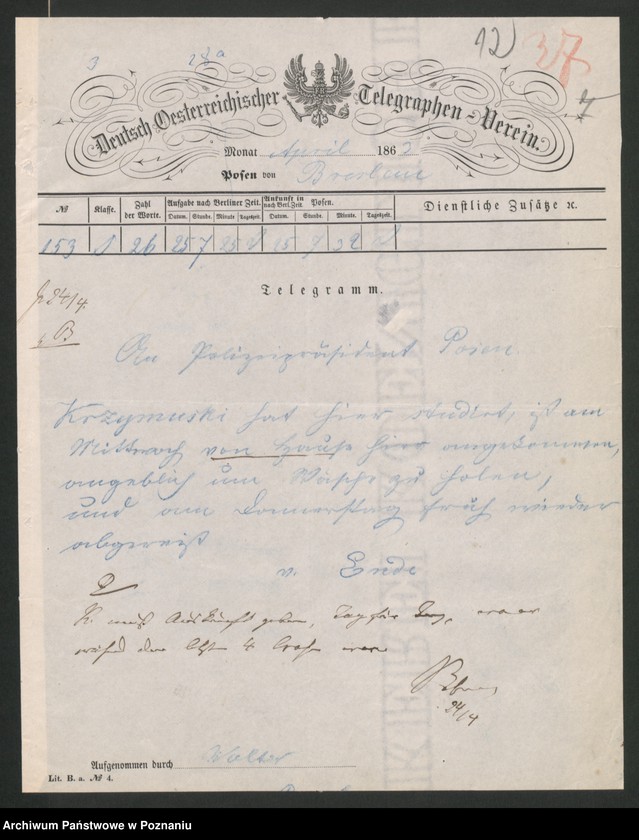 3
28a
12)
37
Deutsch-Oesterreichischer Telegraphen-Verein.
Monat April 1863
Posen von Breslau
№ Klasse. Zahl der Worte. Aufgabe nach Berliner Zeit. Ankunft in Posen. nach Berl. Zeit. Dienstliche Zusätze ꝛc.
Datum. Stunde. Minute Tageszeit. Datum. Stunde. Minute. Tageszeit.
153 1 26 25 7 25 25 9 32
Telegramm.
24/4.
B
An Polizeipräsident Posen
Krzymuski hat hier studirt, ist am
Mittwoch von Hause hier angekommen,
angeblich um Wäsche zu holen,
und am Donnerstag früh wieder
abgereist
v. Ende
K. muß Auskunft geben, Tag für Tag, wo er
während der letzten 4 Wochen war
24/4
Aufgenommen durch Walter
Lit. B. a. № 4.
Archiwum Państwowe w Poznaniu